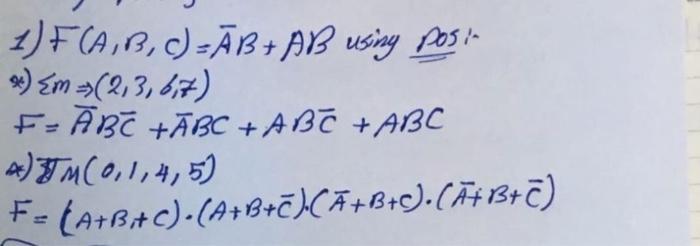 1) F(A,B,C) = A̅B + AB using POS:-
*) Σm ⇒ (2,3,6,7)
F = A̅BC̅ + A̅BC + ABC̅ + ABC
*) πM(0,1,4,5)
F = (A+B+C)·(A+B+C̅)·(A̅+B+C)·(A̅+B+C̅)